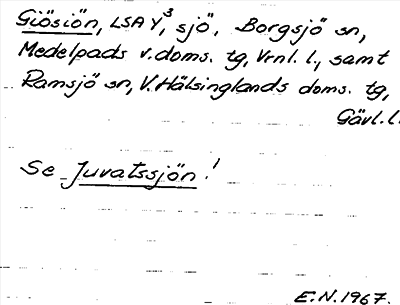 Giösiön, LSA Y³, sjö, Borgsjö sn,
Medelpads v. doms. tg, Vrnl. l., samt
Ramsjö sn, V. Hälsinglands doms. tg,
Gävl. l.
Se Juvatssjön!
E.N. 1967.